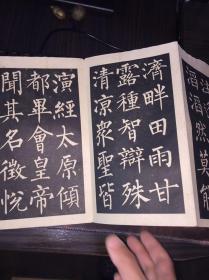 滔然莫能
濟畔田雨甘
露種智辯殊
清涼衆聖皆
演經太原傾
都畢會皇帝
聞其名徵悅